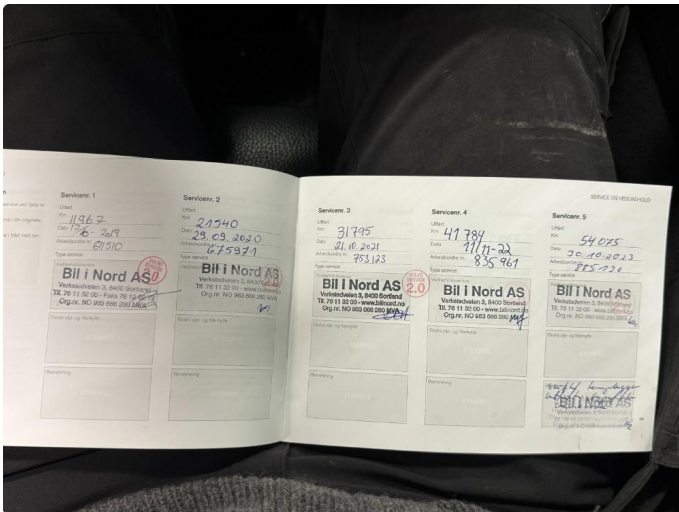 SERVICE OG VEDLIKEHOLD
Servicenr. 1
Utført
Km 11967
Dato 2019
Arbeidsordre nr. 611510
Type service
Bil i Nord AS
Verkstedveien 3, 8400 Sortland
Tlf. 76 11 32 00 - Faks 76 12
Org.nr. NO 903 666 280 MVA
Ekstra olje- og filterbytte
Bemerkning
Servicenr. 2
Utført
Km 21540
Dato 29.09.2020
Arbeidsordre nr. 675971
Type service
Bil i Nord AS
Verkstedveien 3, 8400
Tlf. 76 11 32 00 - www.bilinord.no
Org.nr. NO 903 666 280 MVA
Ekstra olje- og filterbytte
Bemerkning
Servicenr. 3
Utført
Km 31795
Dato 21.10.2021
Arbeidsordre nr. 753123
Type service
Bil i Nord AS
VOLVO SERVICE 2.0
Verkstedveien 3, 8400 Sortland
Tlf. 76 11 32 00 - www.bilinord.no
Org.nr. NO 903 666 280 MVA
Ekstra olje- og filterbytte
Bemerkning
Servicenr. 4
Utført
Km 41784
Dato 11/11-22
Arbeidsordre nr. 835961
Type service
Bil i Nord AS
Verkstedveien 3, 8400 Sortland
Tlf. 76 11 32 00 - www.bilinord.no
Org.nr. NO 903 666 280 MVA
Ekstra olje- og filterbytte
Bemerkning
Servicenr. 5
Utført
Km 54075
Dato 30.10.2023
Arbeidsordre nr.
Type service
Bil i Nord AS
Verkstedveien 3, 8400 Sortland
Tlf. 76 11 32 00 - www.bilinord.no
Org.nr. NO 903 666 280 MVA
Ekstra olje- og filterbytte
Bemerkning
Bil i Nord AS